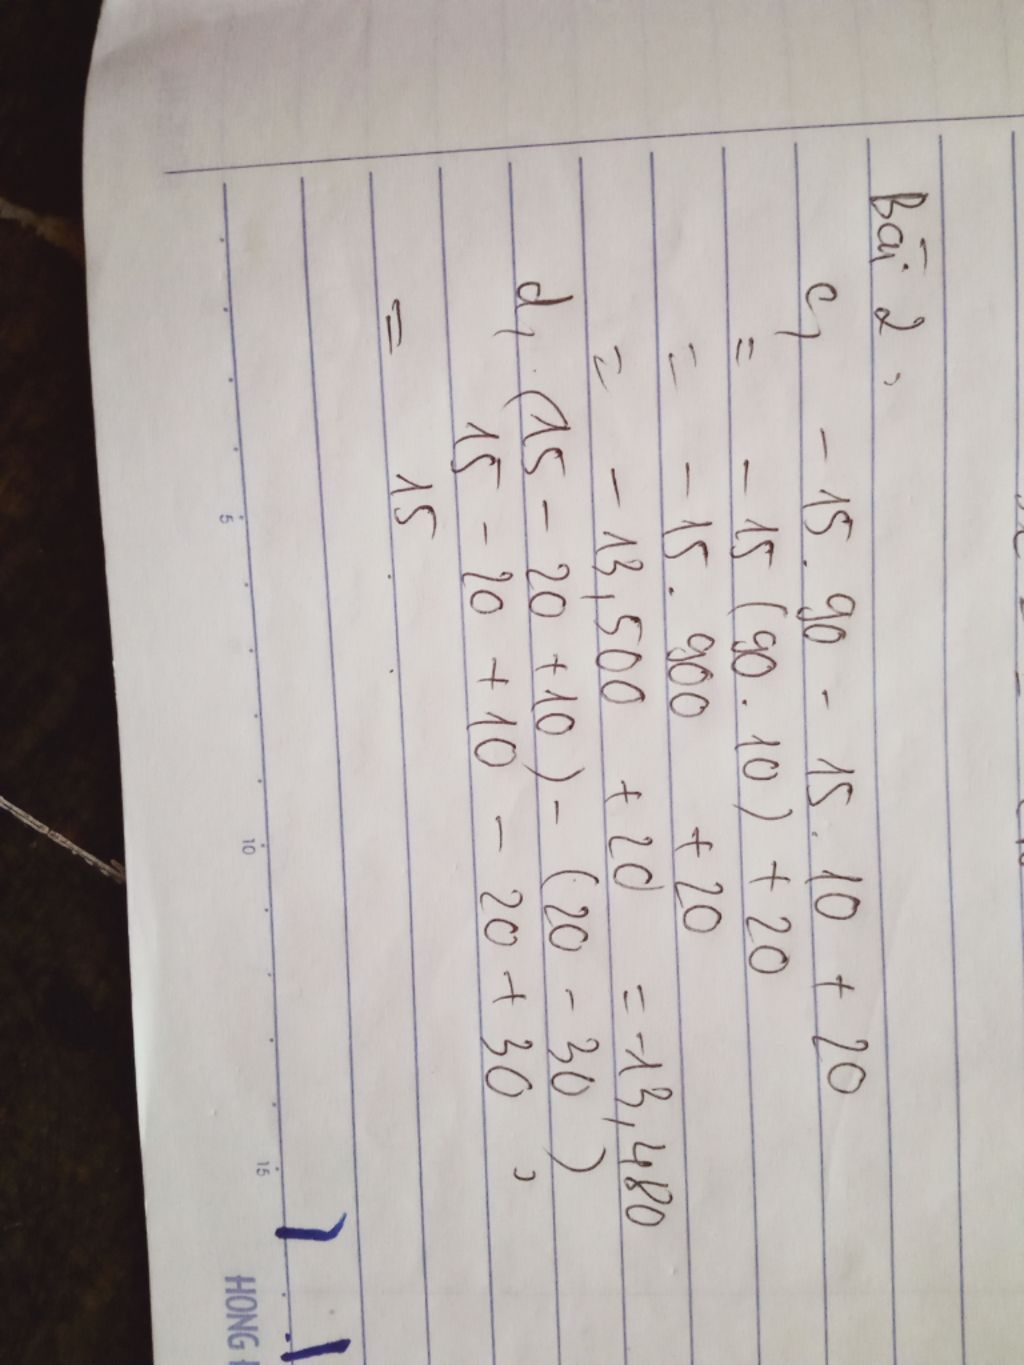 Bài 2,
c, - 15. 90 - 15. 10 + 20
= - 15 (90. 10) + 20
= - 15. 900 + 20
= - 13,500 + 20 = -13,480
d, (15 - 20 +10) - (20 - 30)
15 - 20 + 10 - 20 + 30,
= 15
5 10 15
HONG